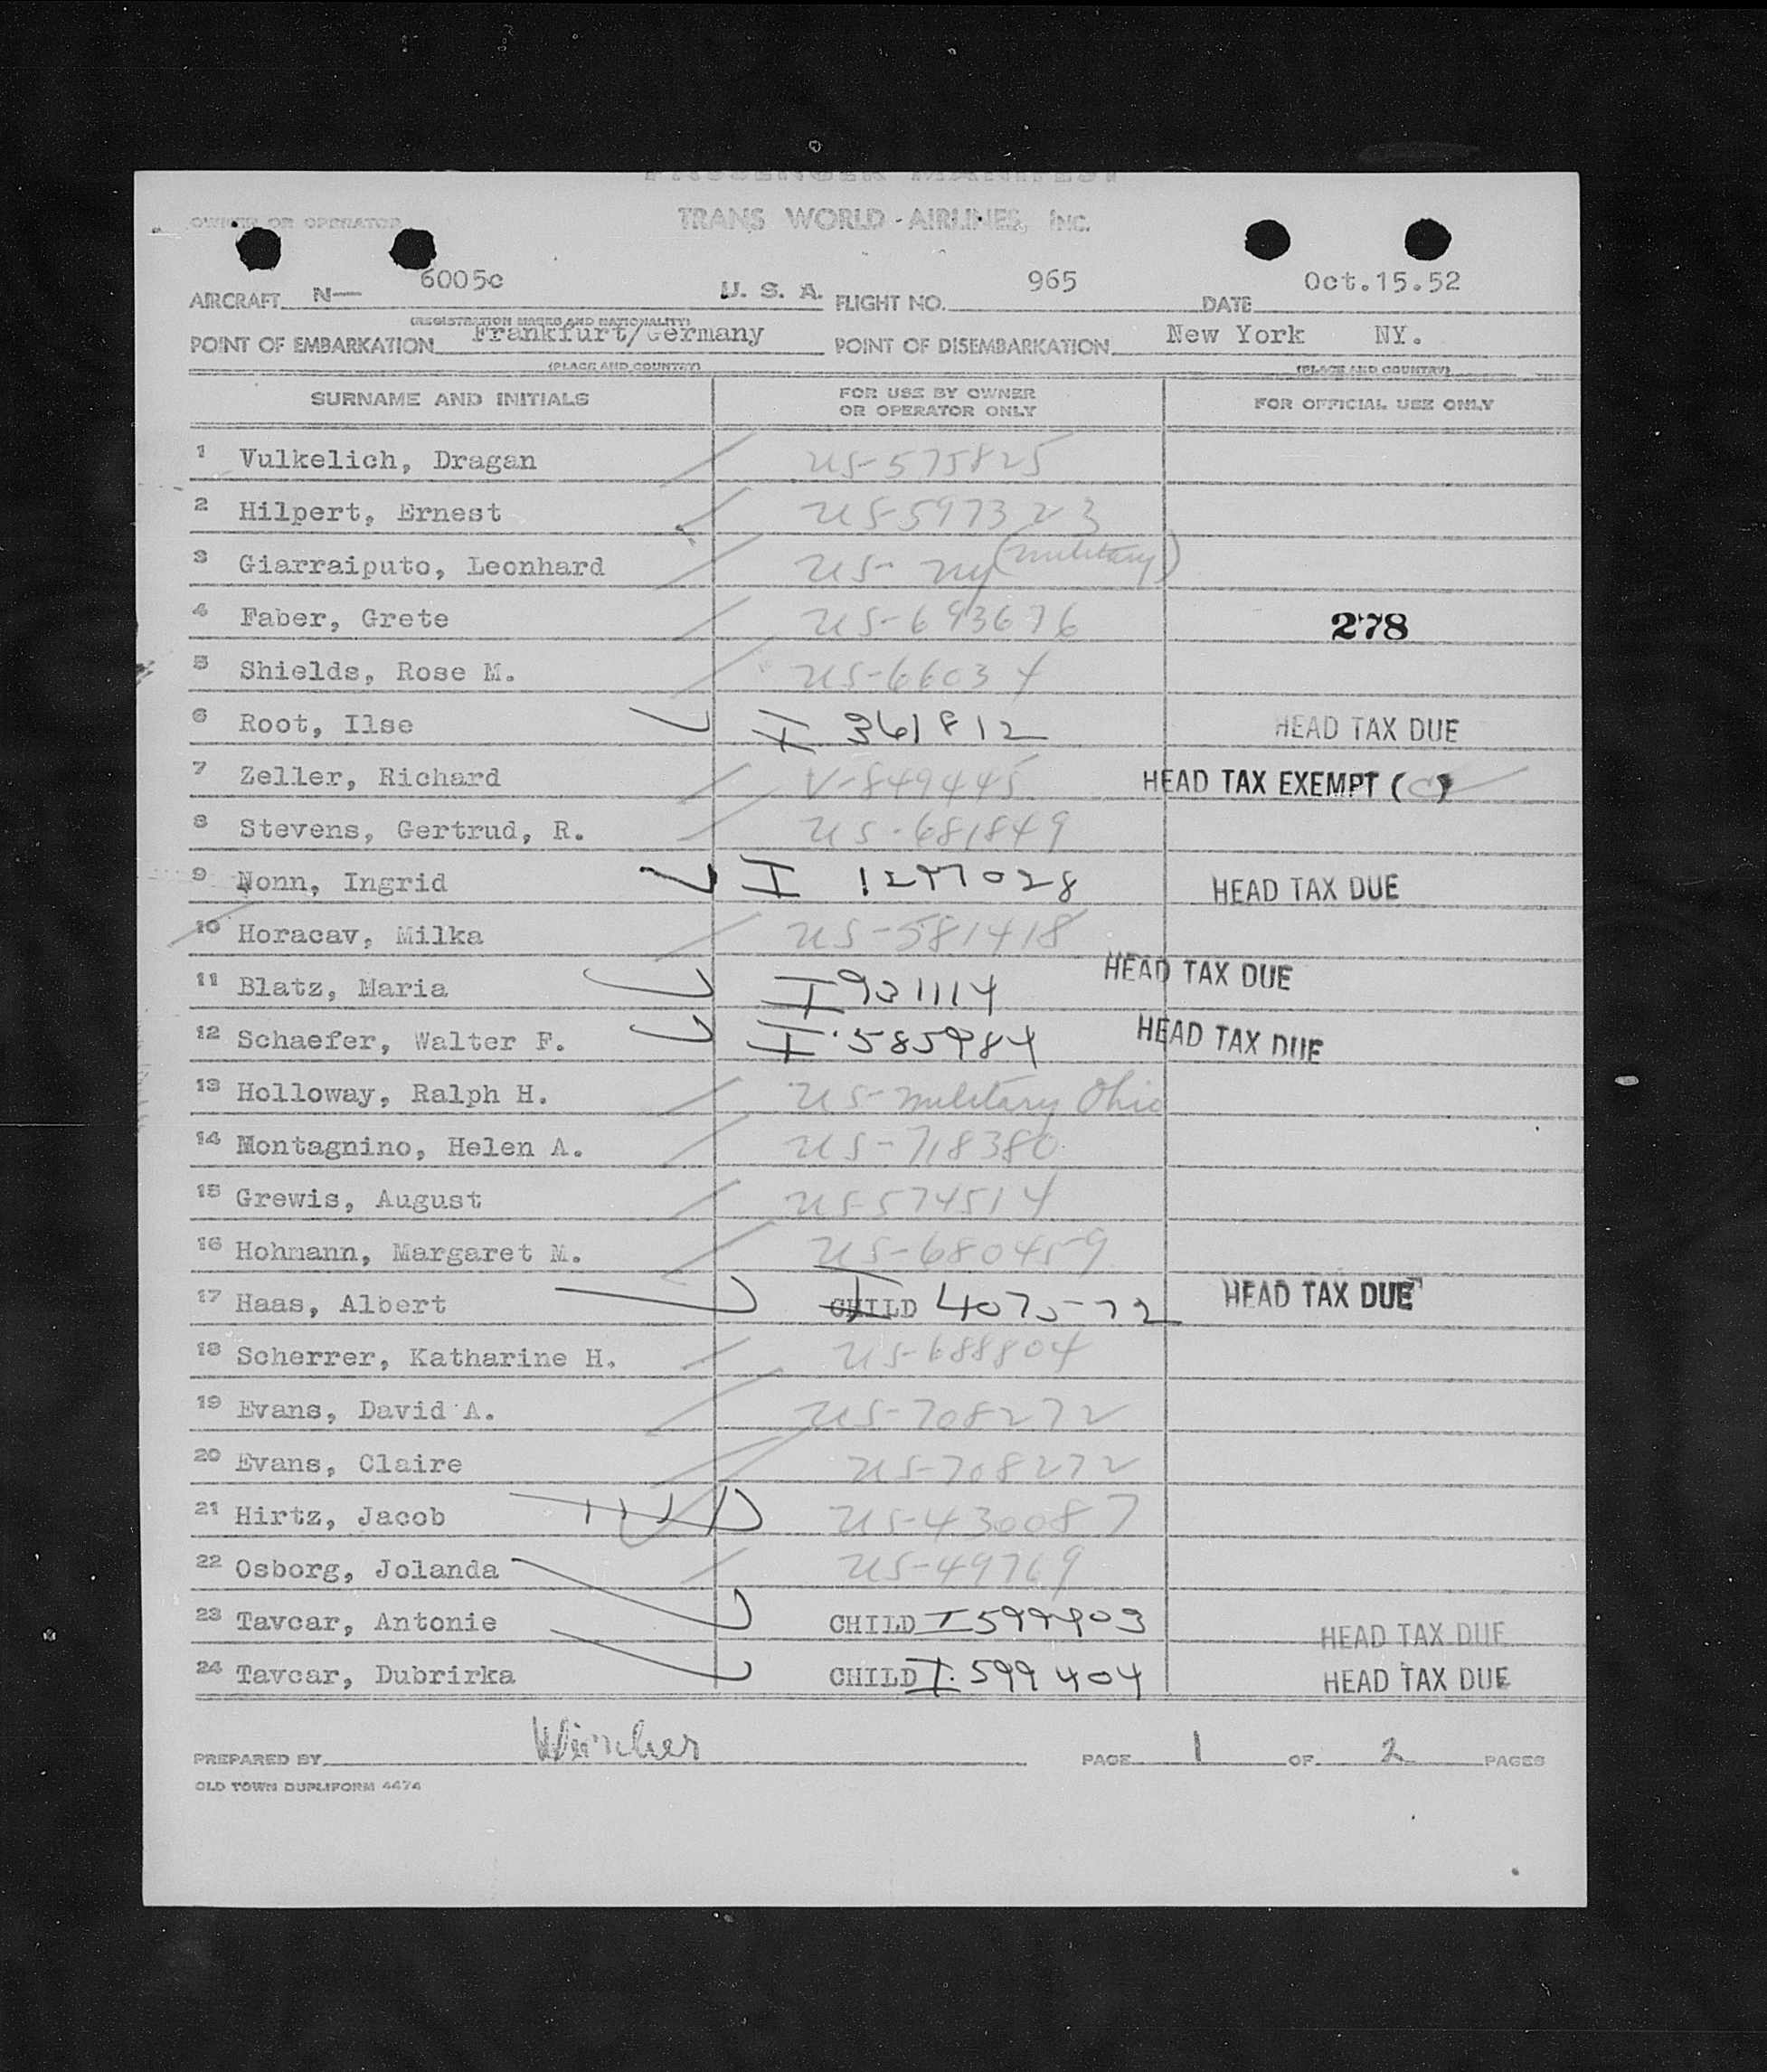 PASSENGER MANIFEST
OWNER OR OPERATOR TRANS WORLD AIRLINES, INC.
AIRCRAFT N— 6005c U. S. A. FLIGHT NO. 965 DATE Oct.15.52
(REGISTRATION MARKS AND NATIONALITY)
POINT OF EMBARKATION Frankfurt/Germany POINT OF DISEMBARKATION New York NY.
(PLACE AND COUNTRY) (PLACE AND COUNTRY)
SURNAME AND INITIALS FOR USE BY OWNER OR OPERATOR ONLY FOR OFFICIAL USE ONLY
1 Vulkelich, Dragan US-575825
2 Hilpert, Ernest US-597323
3 Giarraiputo, Leonhard US- NY (military)
4 Faber, Grete US-693676 278
5 Shields, Rose M. US-66034
6 Root, Ilse I 361812 HEAD TAX DUE
7 Zeller, Richard V-849445 HEAD TAX EXEMPT ( )
8 Stevens, Gertrud, R. US-681849
9 Nonn, Ingrid I 1277028 HEAD TAX DUE
10 Horacav, Milka US-581418
11 Blatz, Maria I 931114 HEAD TAX DUE
12 Schaefer, Walter F. I 585984 HEAD TAX DUE
13 Holloway, Ralph H. US-military Ohio
14 Montagnino, Helen A. US-718380
15 Grewis, August US-574514
16 Hohmann, Margaret M. US-680459
17 Haas, Albert CHILD I 407572 HEAD TAX DUE
18 Scherrer, Katharine H. US-688804
19 Evans, David A. US-708272
20 Evans, Claire US-708272
21 Hirtz, Jacob US-430087
22 Osborg, Jolanda US-49769
23 Tavcar, Antonie CHILD I 599403 HEAD TAX DUE
24 Tavcar, Dubrirka CHILD I 599404 HEAD TAX DUE
PREPARED BY PAGE 1 OF 2 PAGES
OLD TOWN DUPLIFORM 4474